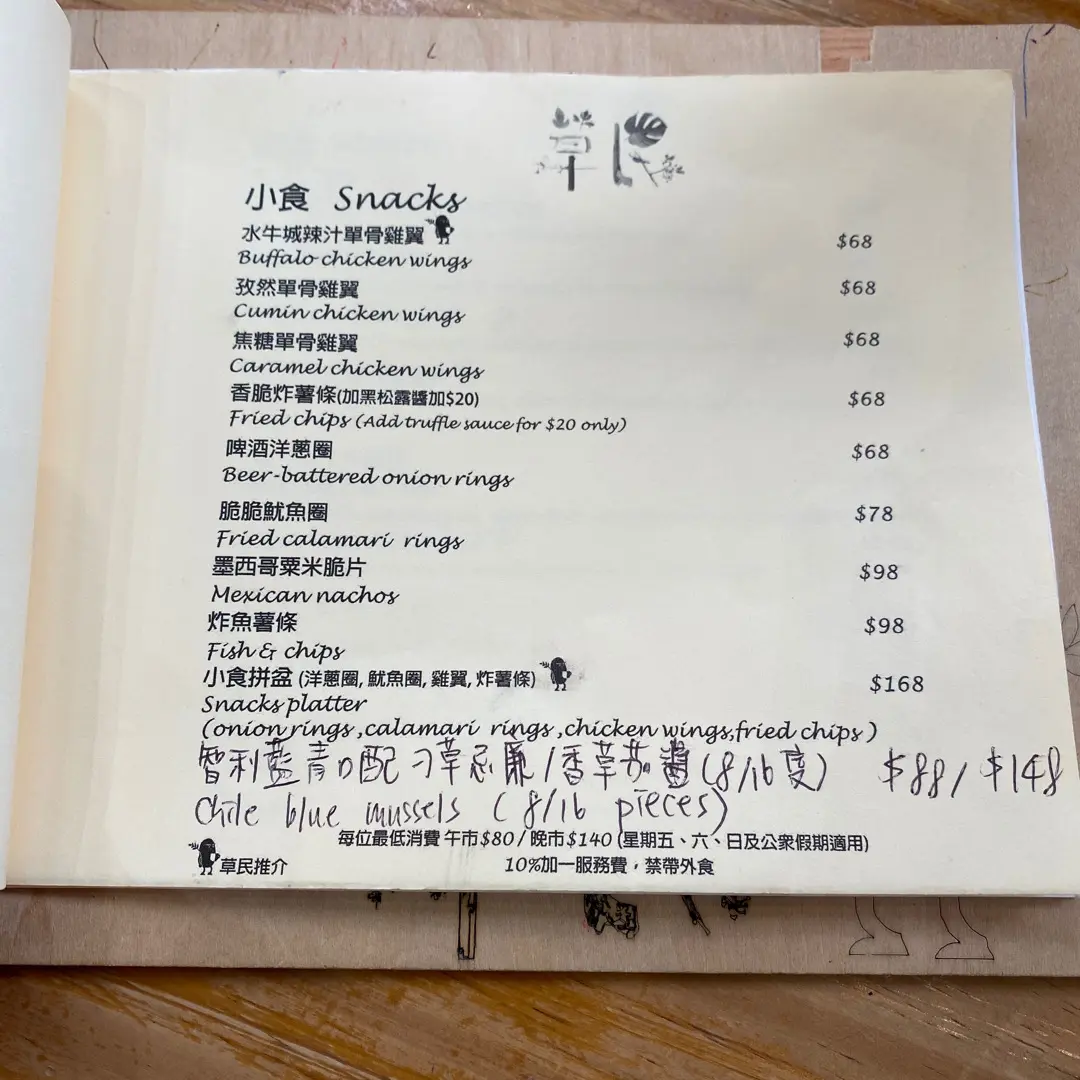 草民
小食 Snacks
水牛城辣汁單骨雞翼 $68
Buffalo chicken wings
孜然單骨雞翼 $68
Cumin chicken wings
焦糖單骨雞翼 $68
Caramel chicken wings
香脆炸薯條(加黑松露醬加$20) $68
Fried chips (Add truffle sauce for $20 only)
啤酒洋蔥圈 $68
Beer-battered onion rings
脆脆魷魚圈 $78
Fried calamari rings
墨西哥粟米脆片 $98
Mexican nachos
炸魚薯條 $98
Fish & chips
小食拼盆 (洋蔥圈, 魷魚圈, 雞翼, 炸薯條) $168
Snacks platter
(onion rings ,calamari rings ,chicken wings,fried chips )
智利藍青口配刁草忌廉/香草茄醬(8/16隻) $88/$148
Chile blue mussels (8/16 pieces)
每位最低消費 午市$80 / 晚市$140 (星期五、六、日及公眾假期適用)
草民推介 10%加一服務費，禁帶外食